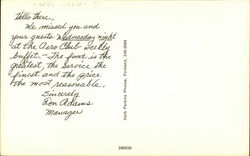 Hello there,
We missed you and
your guests Wednesday night
at the Aero Club weekly
buffet. - The food is the
greatest, the service the
finest and the price
the most reasonable.
Sincerely
Don Adams
Manager
Herb Perkins Photos, Portland, 246-0049